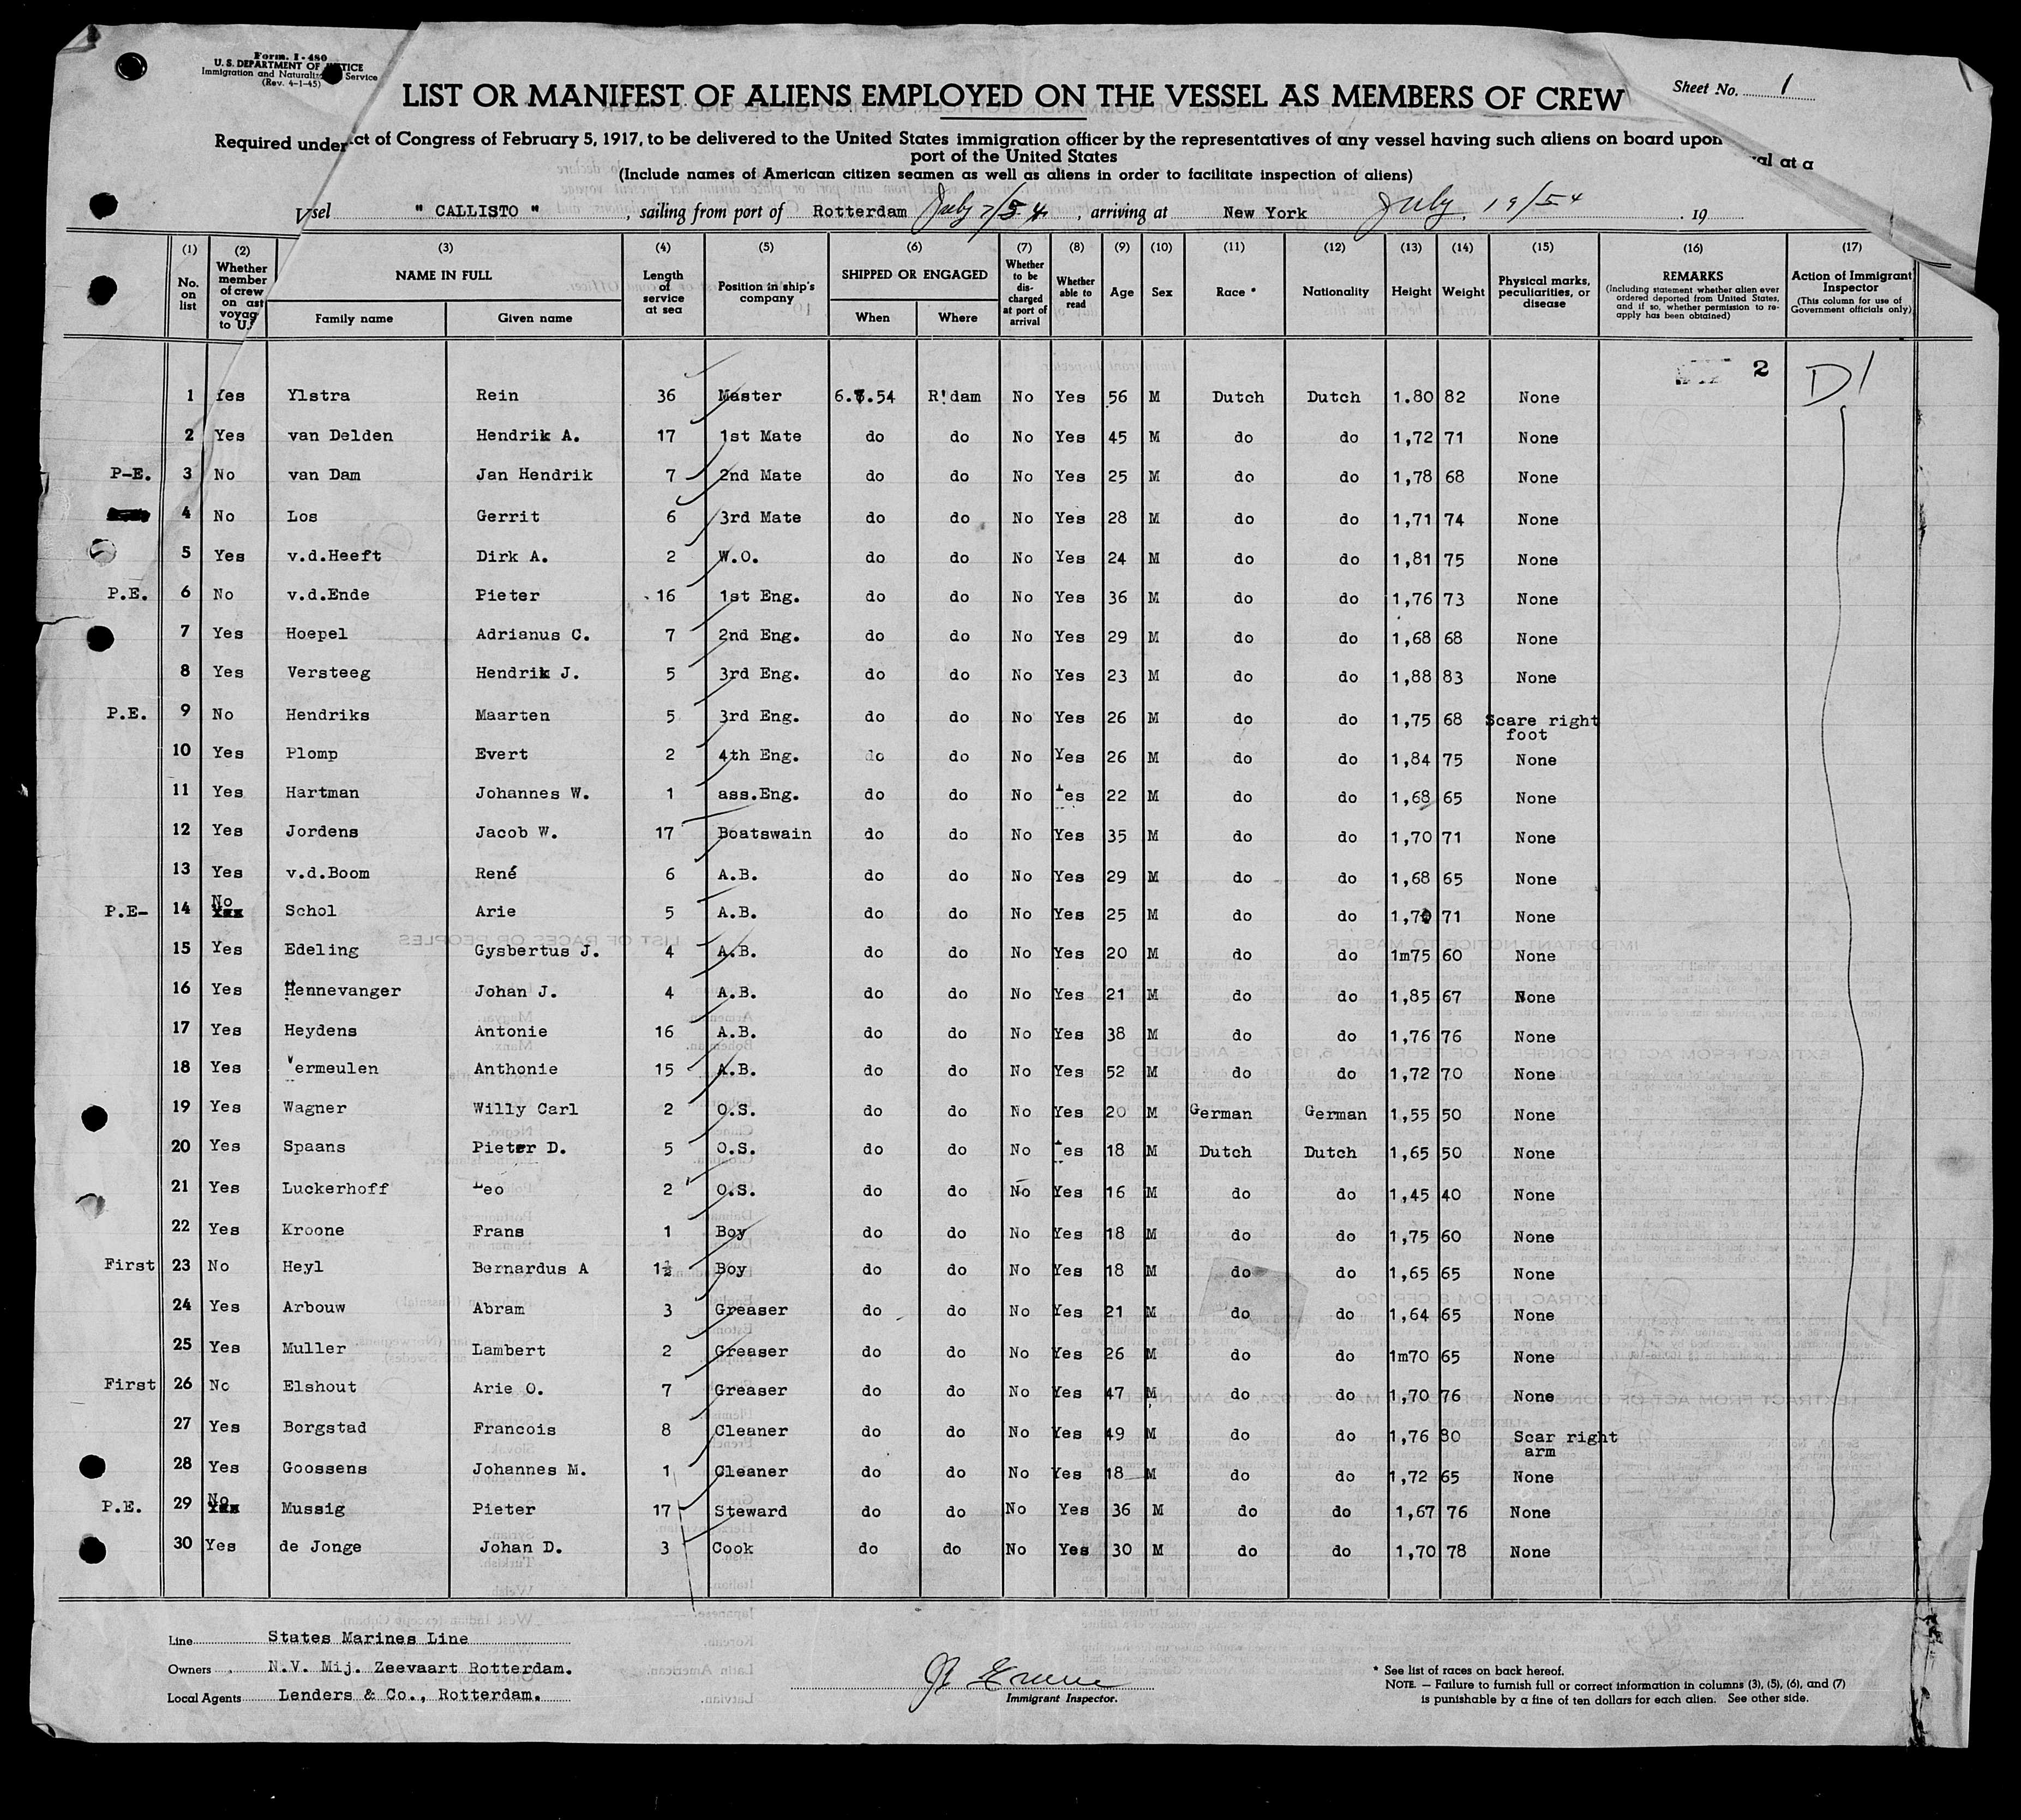 Form. I-480
U. S. DEPARTMENT OF JUSTICE
Immigration and Naturaliz Service
(Rev. 4-1-45)
Sheet No. 1
LIST OR MANIFEST OF ALIENS EMPLOYED ON THE VESSEL AS MEMBERS OF CREW
Required under ct of Congress of February 5, 1917, to be delivered to the United States immigration officer by the representatives of any vessel having such aliens on board upon val at a
port of the United States
(Include names of American citizen seamen as well as aliens in order to facilitate inspection of aliens)
V sel " CALLISTO " , sailing from port of Rotterdam July 7/54 , arriving at New York July, 19/54 . 19
(1) (2) (3) (4) (5) (6) (7) (8) (9) (10) (11) (12) (13) (14) (15) (16) (17)
No. on list Whether member of crew on ast voyag to U. NAME IN FULL Family name Given name Length of service at sea Position in ship's company SHIPPED OR ENGAGED When Where Whether to be dis-charged at port of arrival Whether able to read Age Sex Race * Nationality Height Weight Physical marks, peculiarities, or disease REMARKS (Including statement whether alien ever ordered deported from United States, and if so, whether permission to re-apply has been obtained) Action of Immigrant Inspector (This column for use of Government officials only)
2 D1
1 Yes Ylstra Rein 36 Master 6.7.54 R'dam No Yes 56 M Dutch Dutch 1.80 82 None
2 Yes van Delden Hendrik A. 17 1st Mate do do No Yes 45 M do do 1,72 71 None
P-E. 3 No van Dam Jan Hendrik 7 2nd Mate do do No Yes 25 M do do 1,78 68 None
4 No Los Gerrit 6 3rd Mate do do No Yes 28 M do do 1,71 74 None
5 Yes v.d.Heeft Dirk A. 2 W.O. do do No Yes 24 M do do 1,81 75 None
P.E. 6 No v.d.Ende Pieter 16 1st Eng. do do No Yes 36 M do do 1,76 73 None
7 Yes Hoepel Adrianus C. 7 2nd Eng. do do No Yes 29 M do do 1,68 68 None
8 Yes Versteeg Hendrik J. 5 3rd Eng. do do No Yes 23 M do do 1,88 83 None
P.E. 9 No Hendriks Maarten 5 3rd Eng. do do No Yes 26 M do do 1,75 68 Scare right foot
10 Yes Plomp Evert 2 4th Eng. do do No Yes 26 M do do 1,84 75 None
11 Yes Hartman Johannes W. 1 ass.Eng. do do No Yes 22 M do do 1,68 65 None
12 Yes Jordens Jacob W. 17 Boatswain do do No Yes 35 M do do 1,70 71 None
13 Yes v.d.Boom René 6 A.B. do do No Yes 29 M do do 1,68 65 None
P.E- 14 No Schol Arie 5 A.B. do do No Yes 25 M do do 1,70 71 None
15 Yes Edeling Gysbertus J. 4 A.B. do do No Yes 20 M do do 1m75 60 None
16 Yes Hennevanger Johan J. 4 A.B. do do No Yes 21 M do do 1,85 67 None
17 Yes Heydens Antonie 16 A.B. do do No Yes 38 M do do 1,76 76 None
18 Yes Vermeulen Anthonie 15 A.B. do do No Yes 52 M do do 1,72 70 None
19 Yes Wagner Willy Carl 2 O.S. do do No Yes 20 M German German 1,55 50 None
20 Yes Spaans Pieter D. 5 O.S. do do No Yes 18 M Dutch Dutch 1,65 50 None
21 Yes Luckerhoff Leo 2 O.S. do do No Yes 16 M do do 1,45 40 None
22 Yes Kroone Frans 1 Boy do do No Yes 18 M do do 1,75 60 None
First 23 No Heyl Bernardus A 1½ Boy do do No Yes 18 M do do 1,65 65 None
24 Yes Arbouw Abram 3 Greaser do do No Yes 21 M do do 1,64 65 None
25 Yes Muller Lambert 2 Greaser do do No Yes 26 M do do 1m70 65 None
First 26 No Elshout Arie O. 7 Greaser do do No Yes 47 M do do 1,70 76 None
27 Yes Borgstad Francois 8 Cleaner do do No Yes 49 M do do 1,76 80 Scar right arm
28 Yes Goossens Johannes M. 1 Cleaner do do No Yes 18 M do do 1,72 65 None
P.E. 29 No Mussig Pieter 17 Steward do do No Yes 36 M do do 1,67 76 None
30 Yes de Jonge Johan D. 3 Cook do do No Yes 30 M do do 1,70 78 None
Line States Marines Line
Owners N.V. Mij. Zeevaart Rotterdam.
Local Agents Lenders & Co., Rotterdam.
Immigrant Inspector.
* See list of races on back hereof.
NOTE. — Failure to furnish full or correct information in columns (3), (5), (6), and (7)
is punishable by a fine of ten dollars for each alien. See other side.